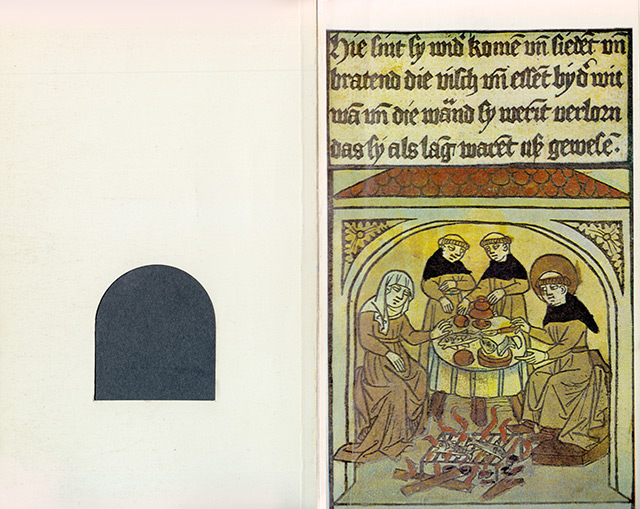 Hie sint sy wid' komē vn̄ siedēt vn̄
bratend die visch vn̄ essēt by d' wit
wā vn̄ die wānd sy werīt verlorn
das sy als lāg warēt vß gewesē.